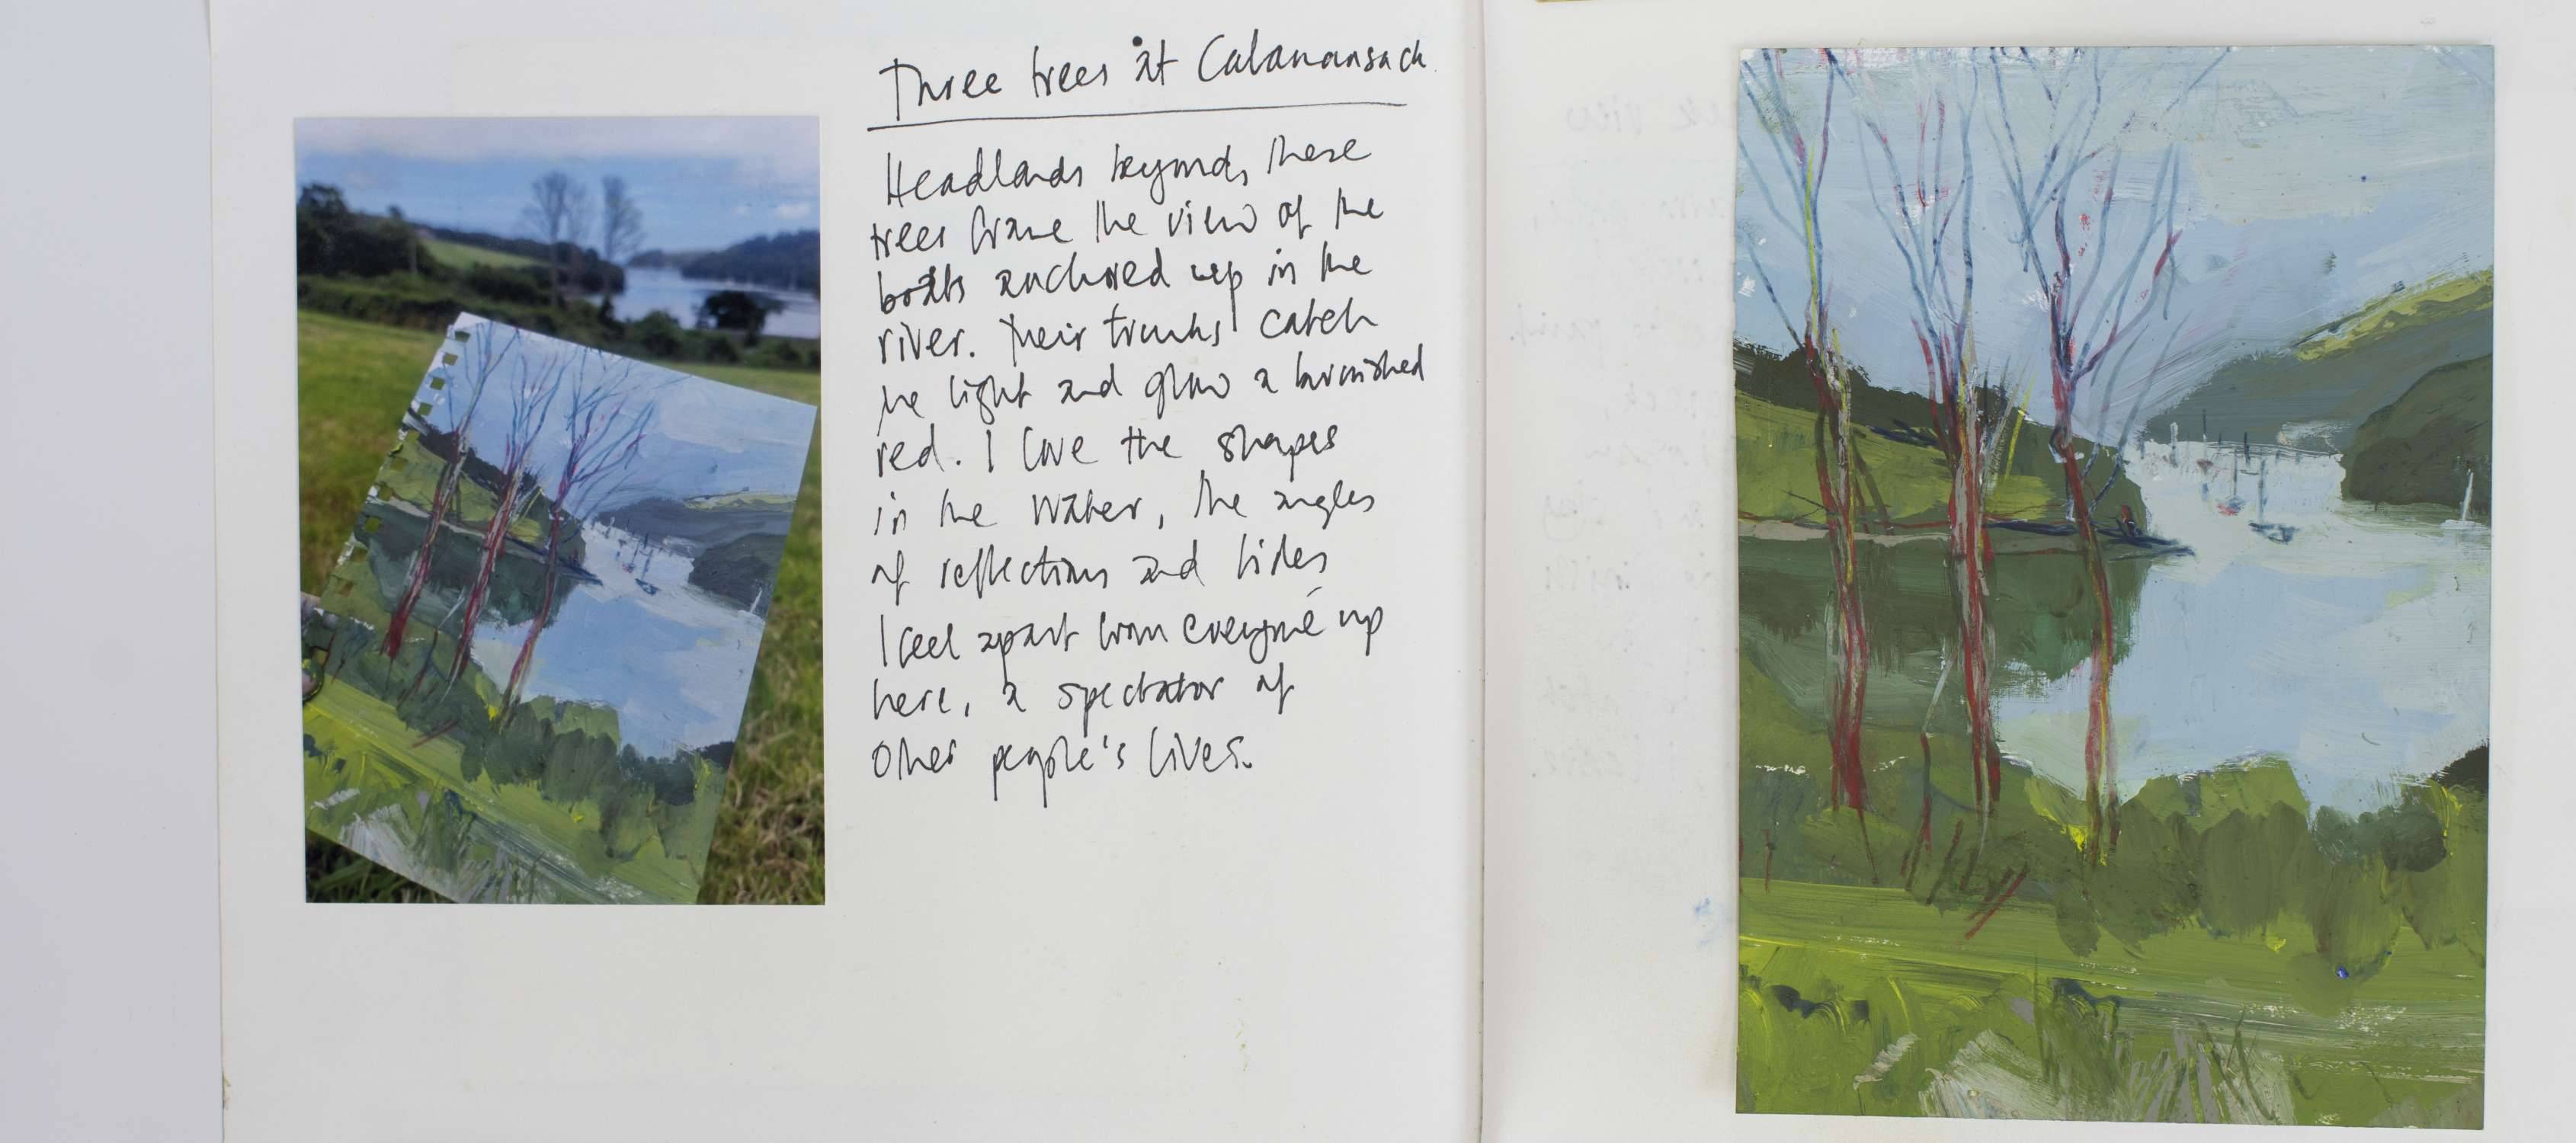 Three trees at Calamansack
Headlands beyond, these
trees frame the view of the
boats anchored up in the
river. Their trunks catch
the light and glow a burnished
red. I love the shapes
in the water, the angles
of reflections and tides
I feel apart from everyone up
here, a spectator of
other people's lives.